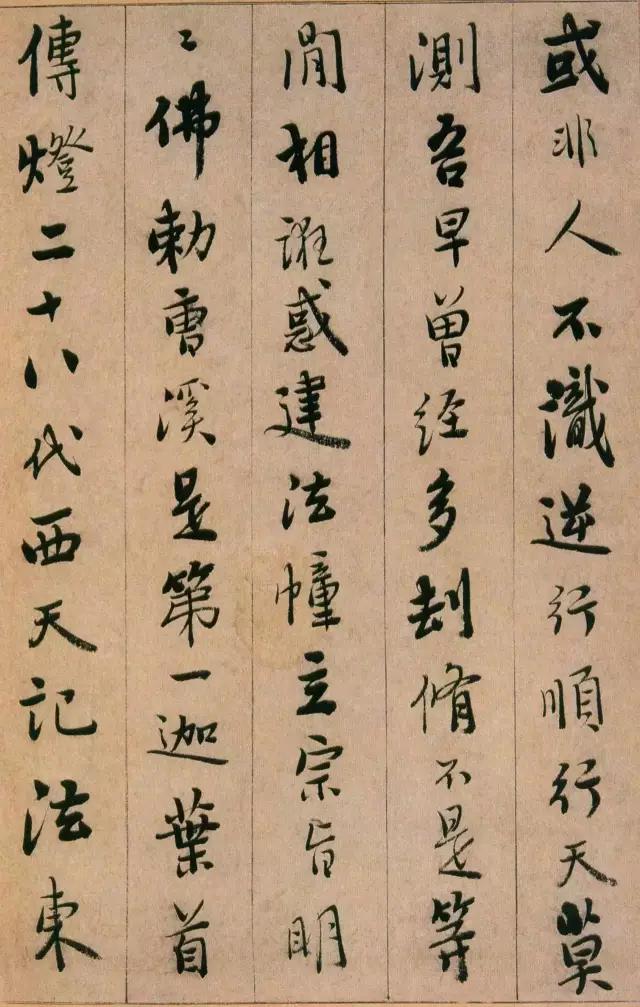 或非人不識逆行順行天莫
測吾早曾經多刼脩不是等
閒相誑惑建法幢立宗旨明
〻佛勅曹溪是第一迦葉首
傳燈二十八代西天記法東